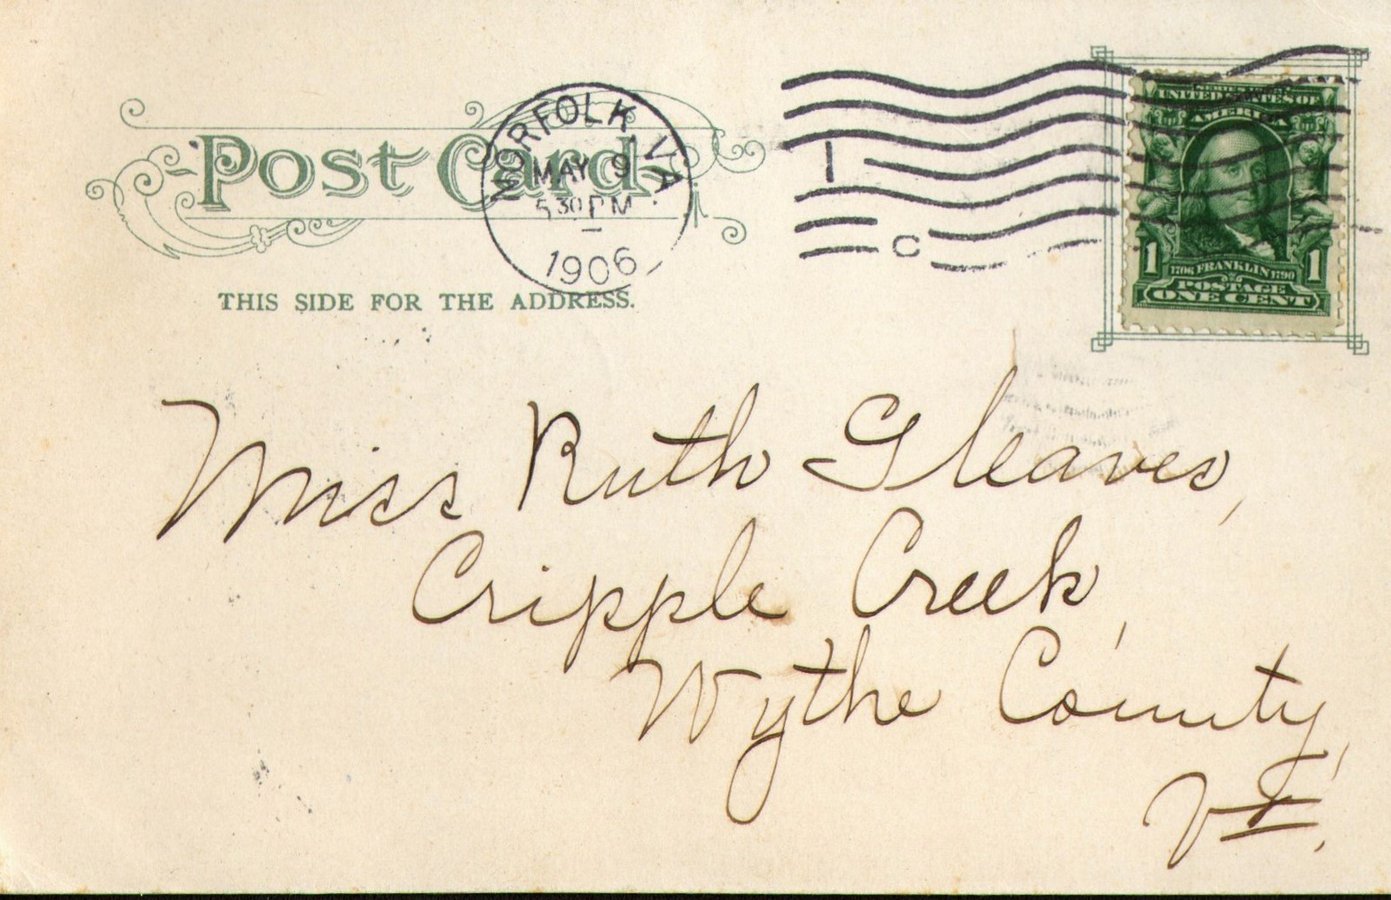 Post Card
NORFOLK VA.
MAY 9
5 30 PM
1906
1
C
THIS SIDE FOR THE ADDRESS.
SERIES 1902
UNITED STATES OF
AMERICA
1 1
1706 FRANKLIN 1790
POSTAGE
ONE CENT
Miss Ruth Gleaves,
Cripple Creek,
Wythe County,
Va.